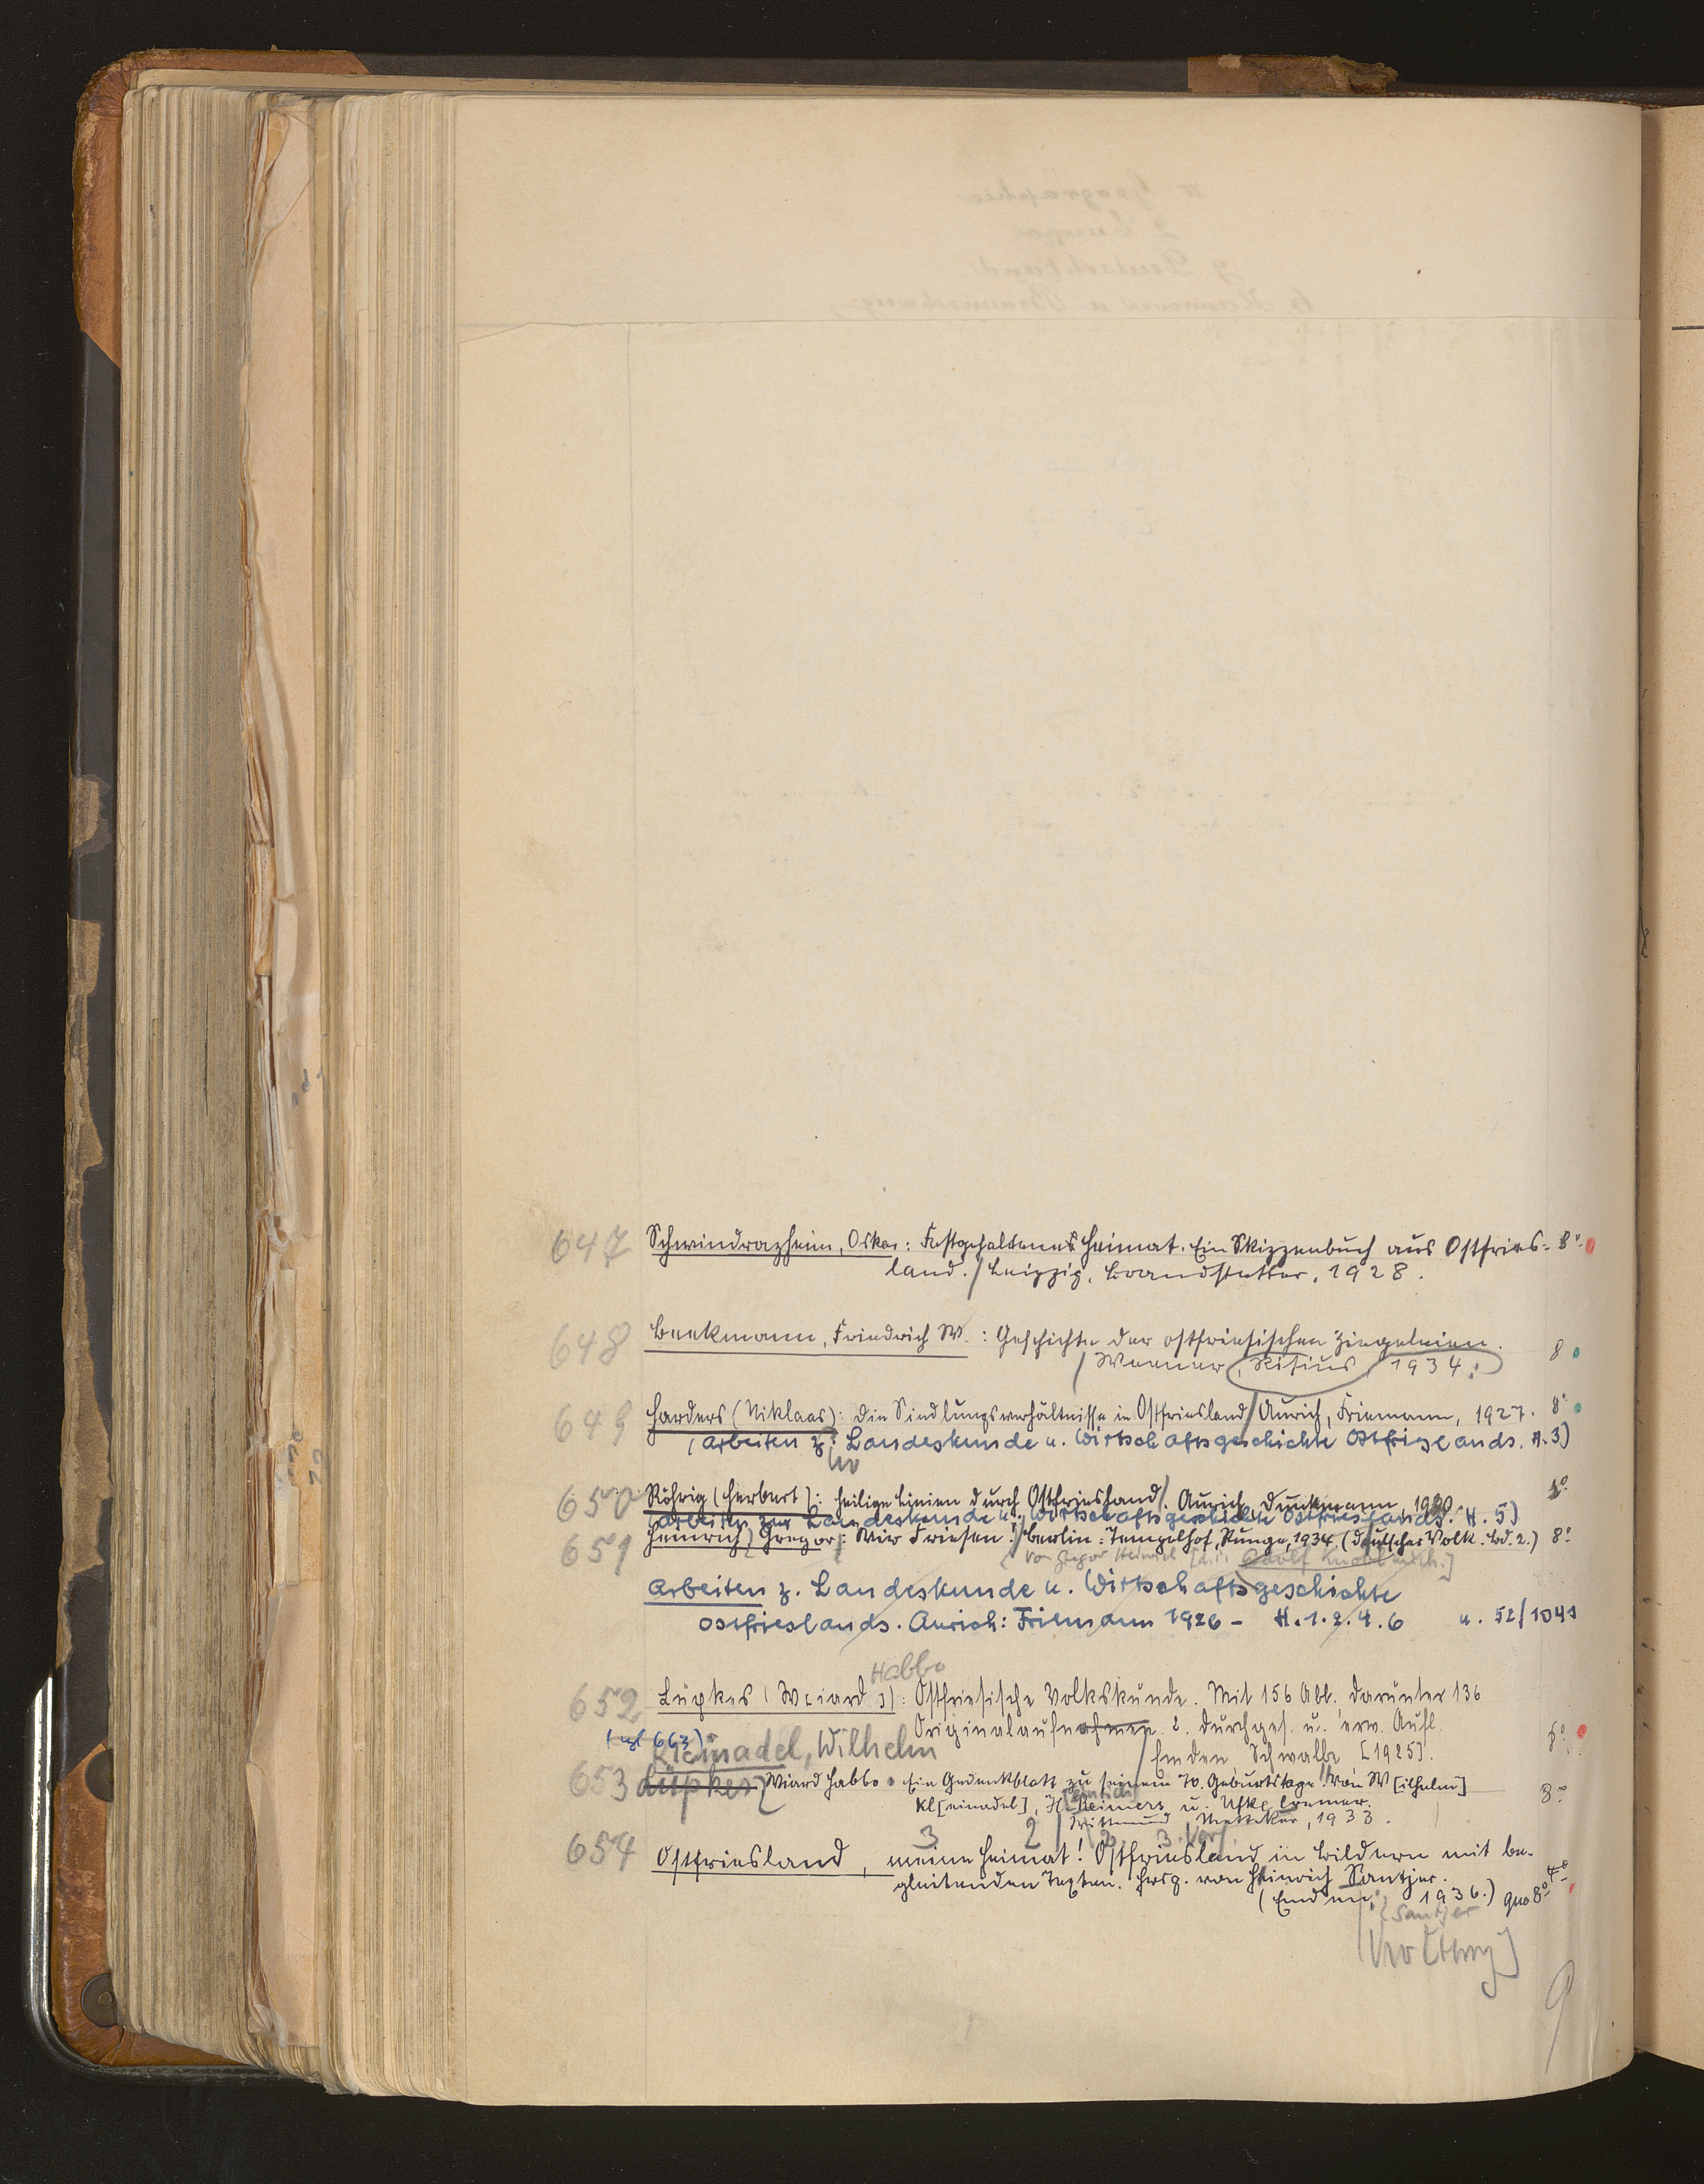 647 Schwindrazheim, Oskar: Festgehaltenes Heimat. Ein Skizzenbuch aus Ostfries= 8°
land. / Leipzig, Brandstetter, 1928.
648 Beekmann, Friedrich W.: Geschichte der ostfriesischen Ziegeleien. 8
/ Weener, Risius, 1934.
649 Harders (Niklaas): Die Siedlungsverhältnisse in Ostfriesland / Aurich, Friemann, 1927. 8°
(Arbeiten z. Landeskunde u. Wirtschaftsgeschichte Ostfrieslands. H. 3)
650 Röhrig (Herbert): Heilige Linien durch Ostfriesland /. Aurich, Dunkmann, 1930 8°
(Arbeiten zur Landeskunde u. Wirtschaftsgeschichte Ostfrieslands. H. 5)
651 Heinrich, Gregor: Wir Friesen! / Berlin=Tempelhof, Runge, 1934. (Deutsches Volk. Bd. 2.) 8°
Von Gregor Heinrich [d. i. Adolf
Arbeiten z. Landeskunde u. Wirtschaftsgeschichte
Ostfrieslands. Aurich: Friemann 1926 - H. 1. 2. 4. 6 u. 52/1041
Habbo
652 Lüpkes (W[iard]): Ostfriesische Volkskunde. Mit 156 Abb. darunter 136
Originalaufnahmen. 2. durchges. u. erw. Aufl.
(vgl 663)
Kleinadel, Wilhelm / Emden, Schwalbe [1925]. 8°
653 Lüpkes, Wiard Habbo. Ein Gedenkblatt zu seinem 70. Geburtstage. Von W[ilhelm]
Kl[einadel], H[einrich] Reimers u. Ufke Cremer. 8°
/ Wittmund, Mettcker, 1933.
3 2 2 3
654 Ostfriesland, meine Heimat! Ostfriesland in Bildern mit be-
gleitenden Texten. Hrsg. von Heinrich Santjer.
(Emden, 1936.) qu 8° 4°
Santjer
9